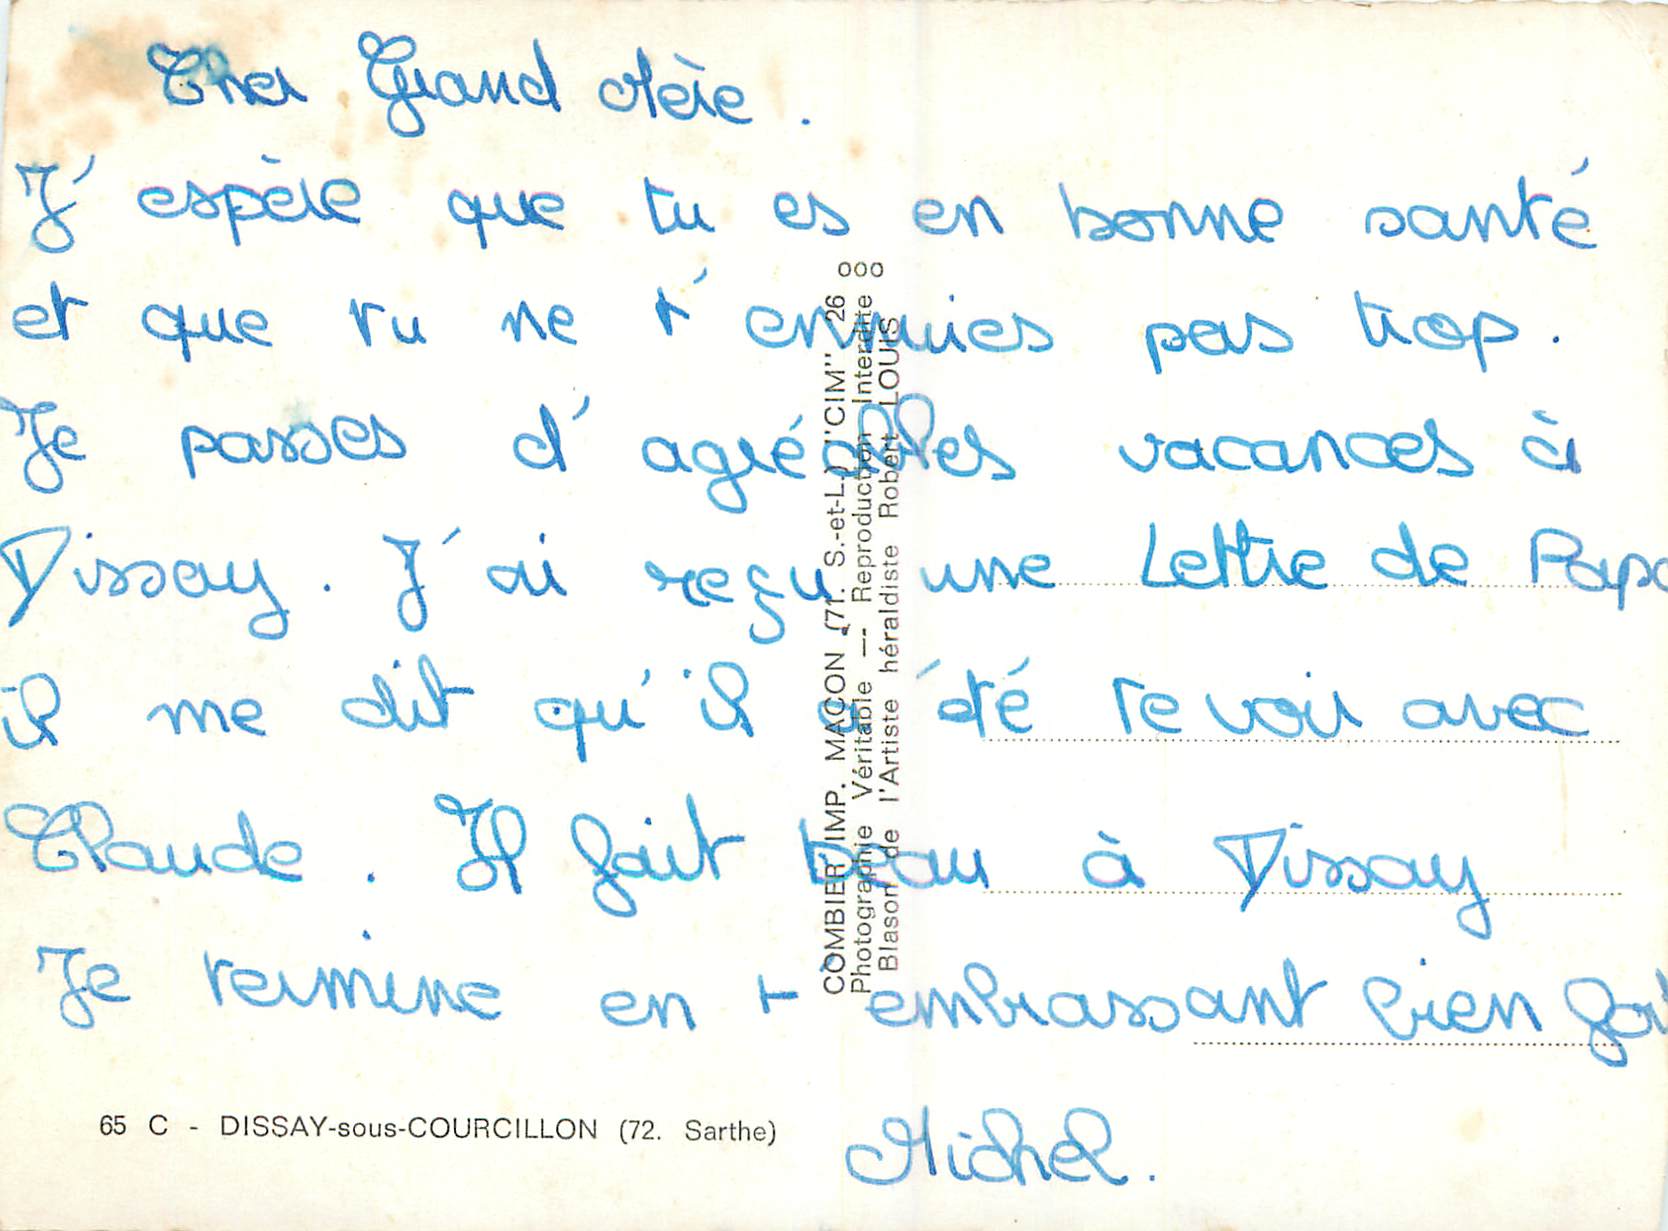 Cher Grand Père.
J'espère que tu es en bonne santé
et que tu ne t'ennuies pas trop.
Je passes d'agréables vacances à
Dissay. J'ai reçu une Lettre de Papa
il me dit qu'il a été te voir avec
Claude. Il fait beau à Dissay
Je termine en t'embrassant bien fort
Michel.
65 C - DISSAY-sous-COURCILLON (72. Sarthe)
COMBIER IMP. MACON (71. S.-et-L.) "CIM" 26 000
Photographie Véritable — Reproduction Interdite
Blason de l'Artiste héraldiste Robert LOUIS